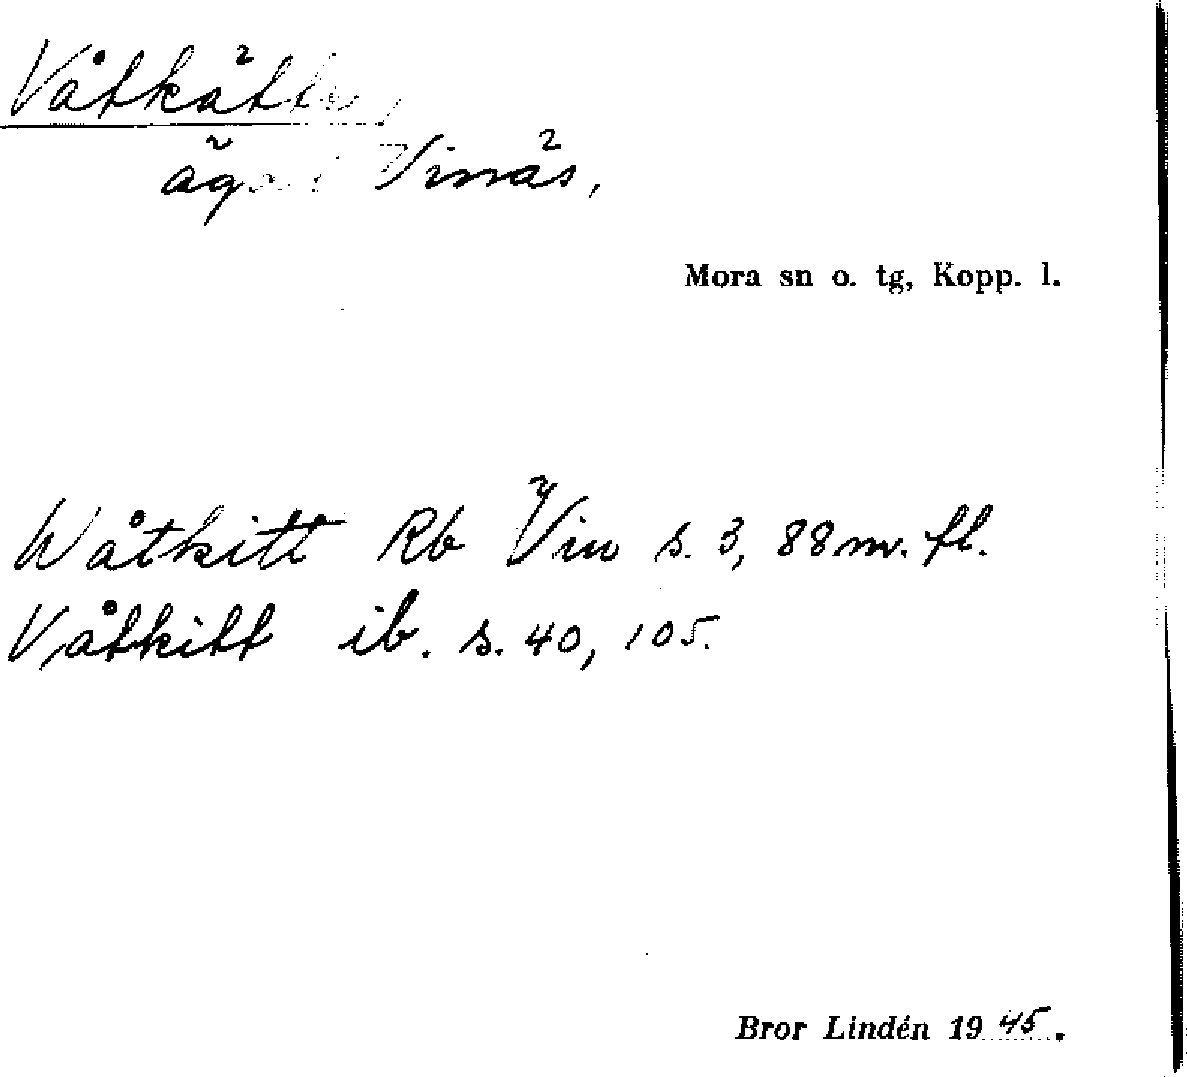 Våtkätt
äga i Vinäs,
Mora sn o. tg, Kopp. l.
Wåtkitt Rb Vin s. 3, 88 m. fl.
Våtkitt ib. s. 40, 105.
Bror Lindén 1945.